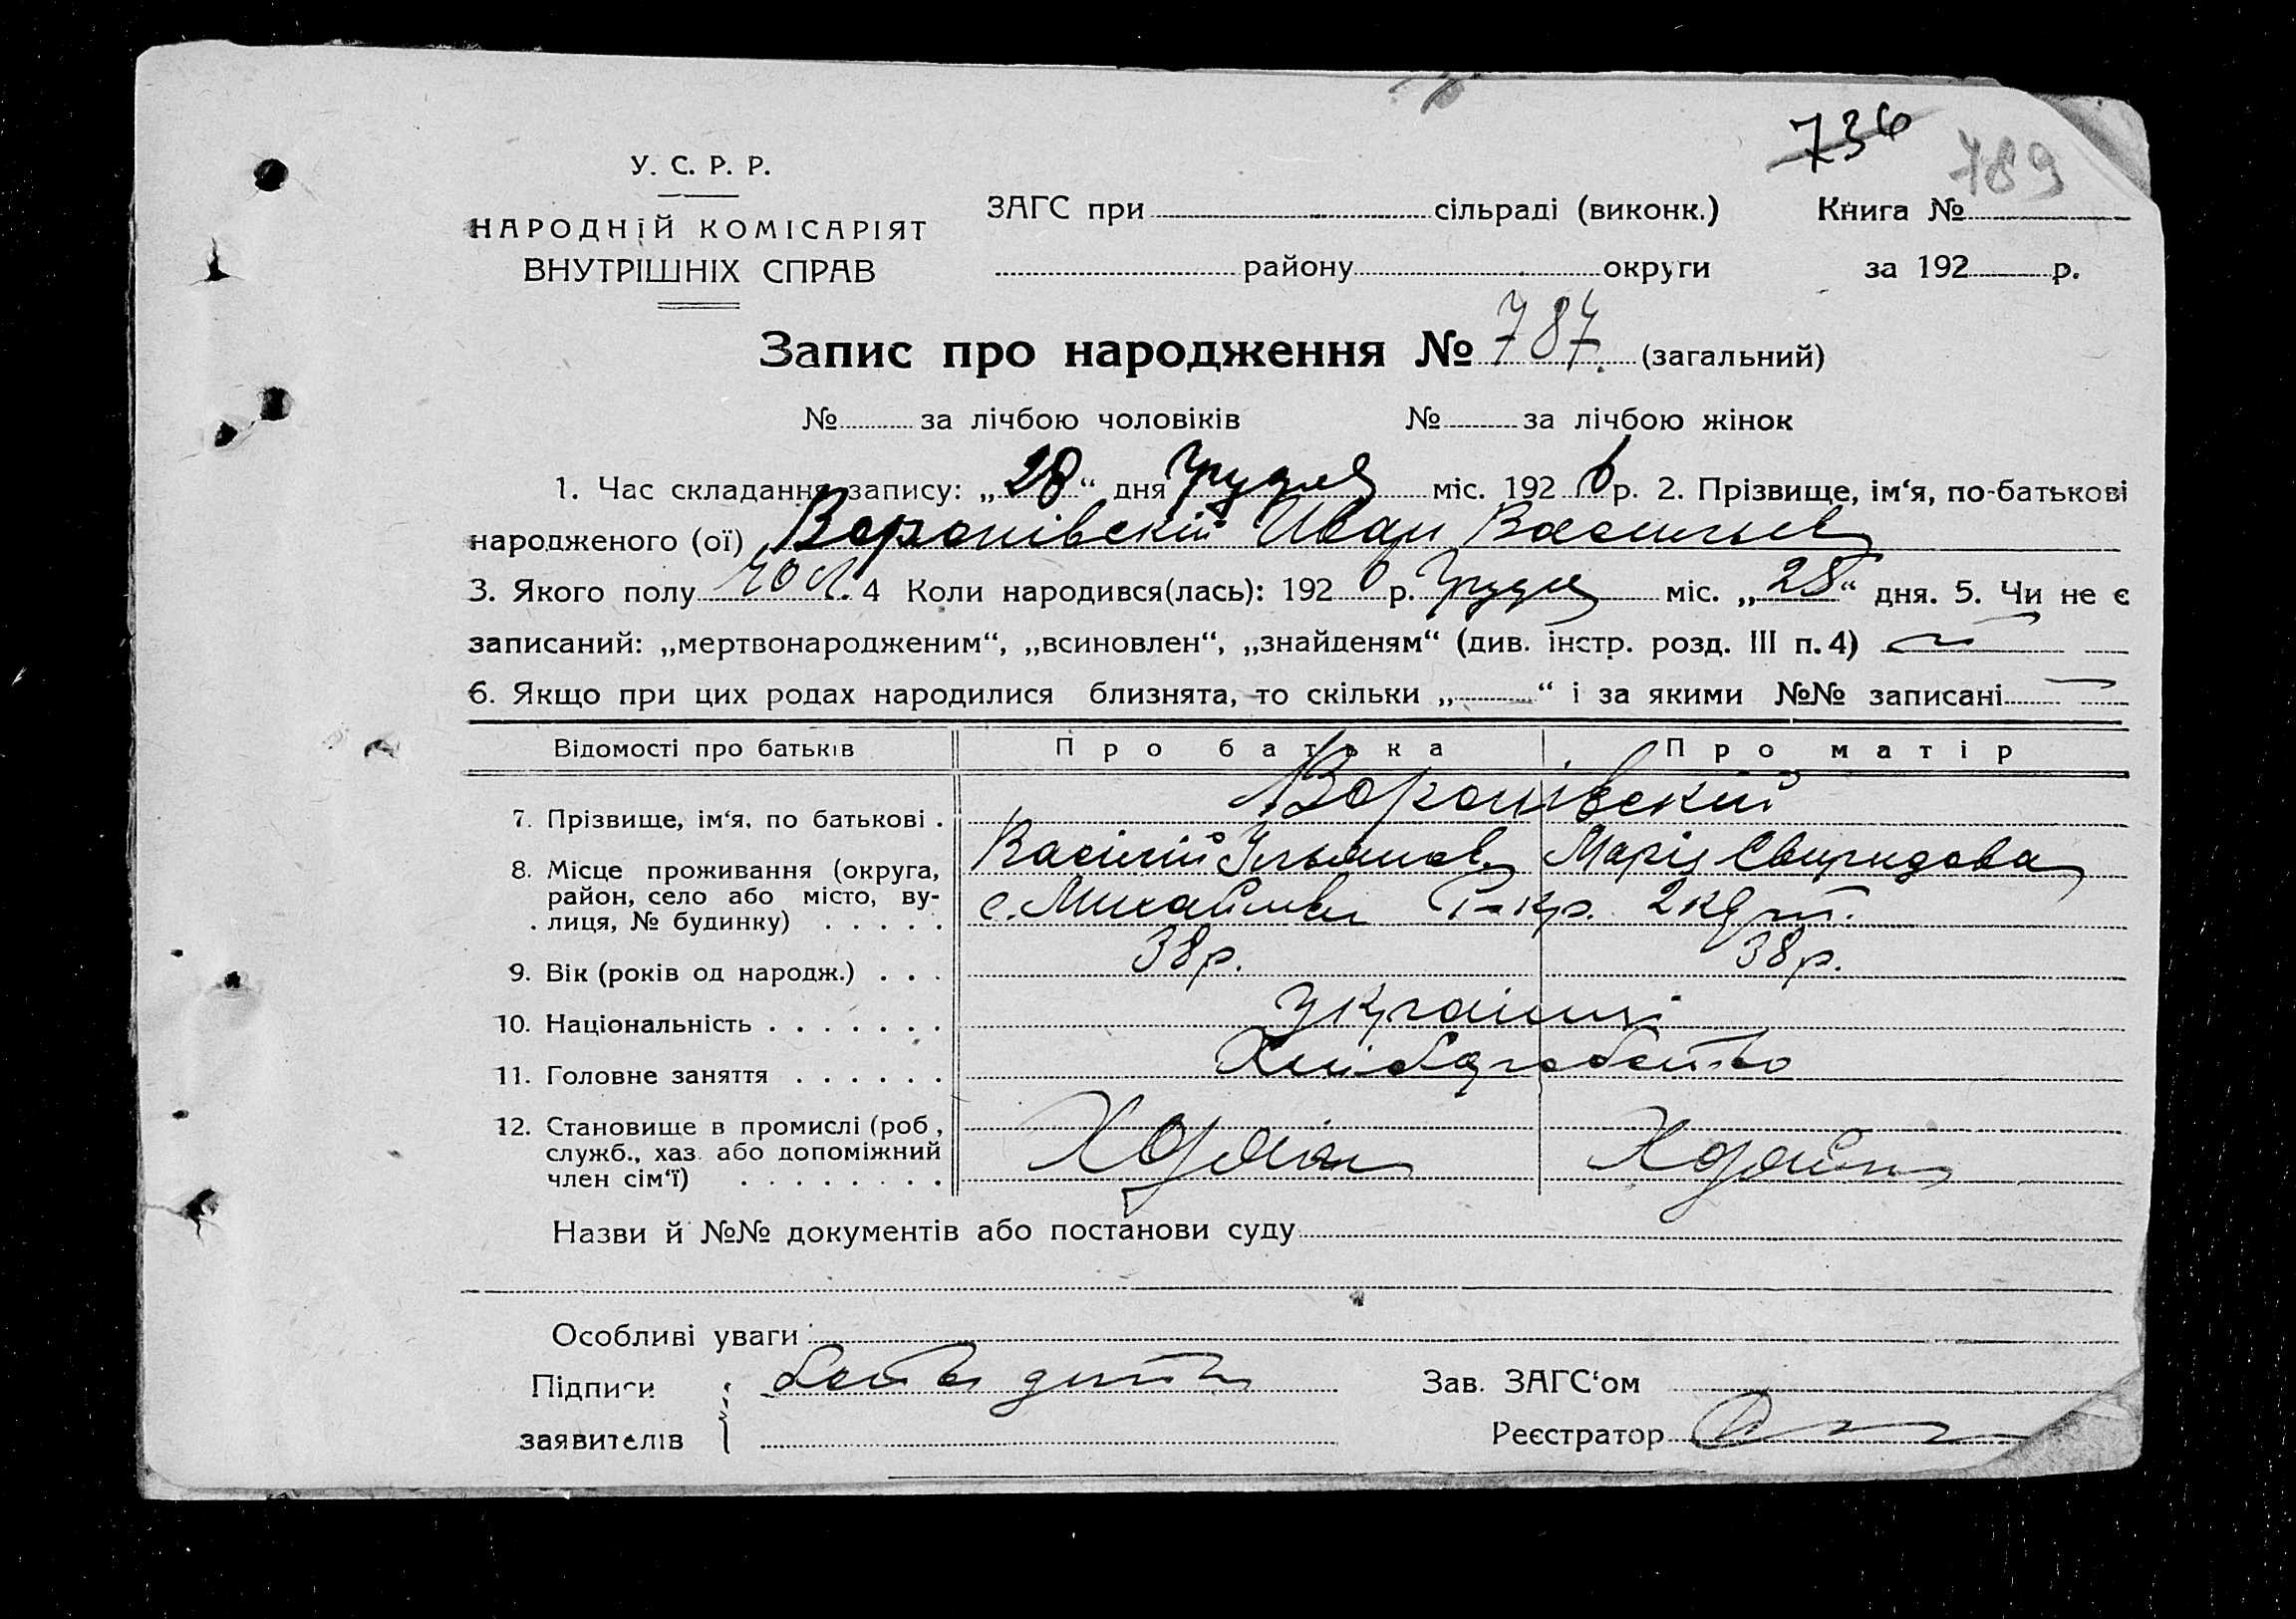 736
789
У. С. Р. Р.
НАРОДНІЙ КОМІСАРІЯТ
ВНУТРІШНІХ СПРАВ
ЗАГС при сільраді (виконк.) Книга №
району округи за 192 р.
Запис про народження № 787. (загальний)
№ за лічбою чоловіків № за лічбою жінок
1. Час складання запису: „28“ дня Грудня міс. 1926 р. 2. Прізвище, ім‘я, по-батькові
народженого (ої) Воронівскій Иван Васильев
3. Якого полу чол. 4 Коли народився(лась): 1926 р. Грудня міс. „28“ дня. 5. Чи не є
записаний: „мертвонародженим“, „всиновлен“, „знайденям“ (див. інстр. розд. III п. 4)
6. Якщо при цих родах народилися близнята, то скільки „ “ і за якими №№ записані
Відомості про батьків Про батька Про матір
Воронівский
7. Прізвище, ім‘я, по батькові .
Василій Ульянов. Марія Свиридова
8. Місце проживання (округа,
район, село або місто, ву-
лиця, № будинку) . . . . .
с. Михайлівки
9. Вік (років од народж.) . . . 38р. 38р.
10. Національність . . . . . . . Українці
11. Головне заняття . . . . . . Хліборобство
12. Становище в промислі (роб.,
служб., хаз. або допоміжний
член сім‘ї) . . . . . . . .
Назви й №№ документів або постанови суду
Особливі уваги
Підписи
заявителів
Зав. ЗАГС‘ом
Реєстратор